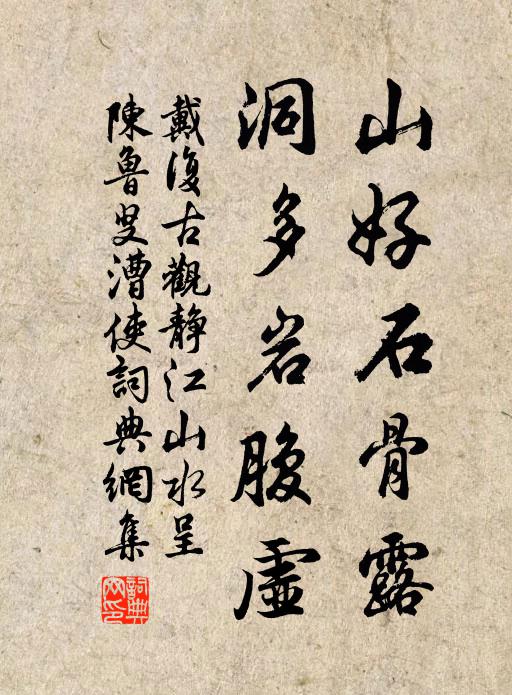 山好石骨露
洞多岩腹虛
戴復古觀静江山水呈
陳魯叟漕使詞典網集
詞典網印